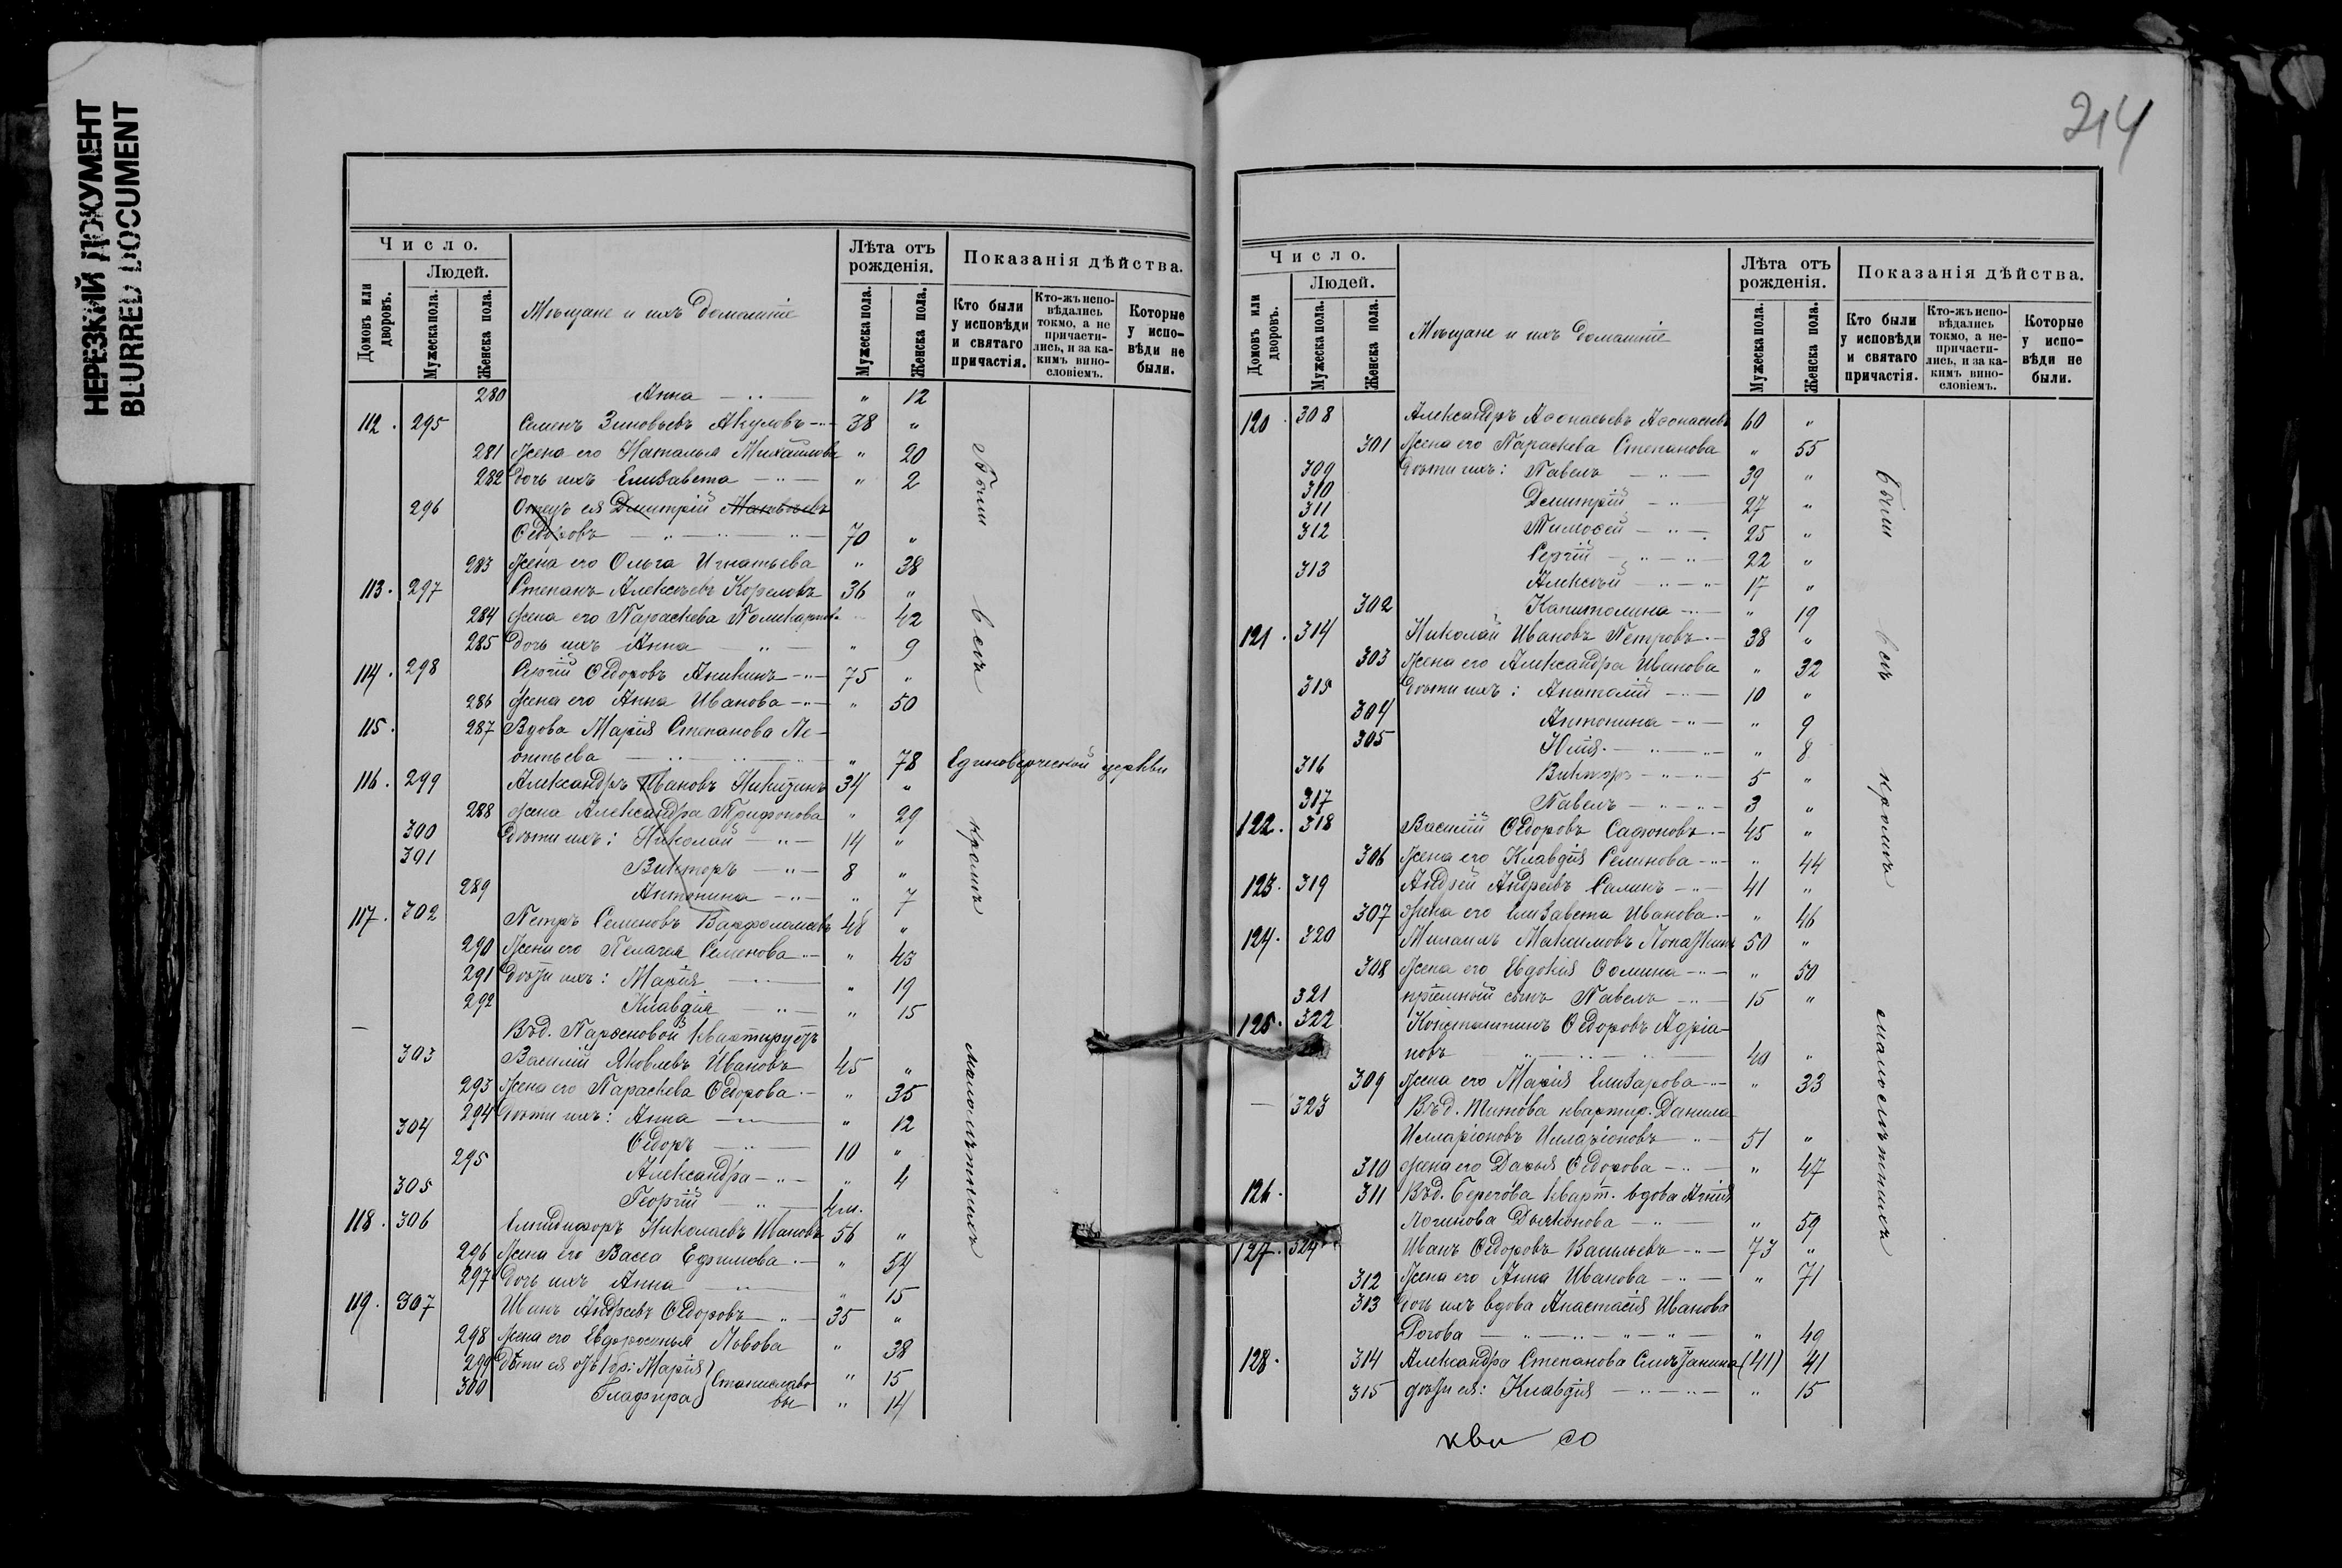 НЕРЕЗКИЙ ДОКУМЕНТ
BLURRED DOCUMENT
Число.
Людей.
Домовъ или дворовъ.
Мужеска пола.
Женска пола.
Мѣщане и ихъ домашніе
Лѣта отъ рожденія.
Мужеска пола.
Женска пола.
Показанія дѣйства.
Кто были у исповѣди и святаго причастія.
Кто-жъ исповѣдались токмо, а не причастились, и за какимъ винословіемъ.
Которые у исповѣди не были.
280 Анна — " — " 12
112. 295 Семенъ Зиновьевъ Акуловъ — " — 38 "
281 Жена его Наталья Михайлова " 20
282 Дочь ихъ Елизавета — " — " 2
296 Отецъ ея Дмитрій Матвѣевъ
Ѳедоровъ — " — " — " — 70 "
283 Жена его Ольга Игнатьева " 38
113. 297 Степанъ Алексѣевъ Кореловъ 36 "
284 Жена его Параскева Поликарпов. 42
285 Дочь ихъ Анна — " — " 9
114. 298 Сергій Ѳедоровъ Аникинъ — " — 75 "
286 Жена его Анна Иванова — " — " 50
115. 287 Вдова Марія Степанова Ле-
онтьева — " — " — " 78 Единоверческой церкви
116. 299 Александръ Ивановъ Никитинъ 34 "
288 Жена Александра Трифонова " 29
300 Дѣти ихъ: Николай — " — 14 "
301 Викторъ — " — 8 "
289 Антонина — " — " 7
117. 302 Петръ Семеновъ Варфоломеевъ 48 "
290 Жена его Пелагея Семенова — " 43
291 Дѣти ихъ: Марія — " — " 19
292 Клавдія — " — " 15
— Въ д. Парѳеновой квартируетъ
303 Василій Яковлевъ Ивановъ 45 "
293 Жена его Параскева Ѳедорова — " 35
294 Дѣти ихъ: Анна — " — " 12
304 Ѳедоръ — " — 10 "
295 Александра — " — " 4
305 Георгій — " — 4 м.
118. 306 Елпидифоръ Николаевъ Ивановъ 56 "
296 Жена его Васса Ефимова — " 54
297 Дочь ихъ Анна — " — " 15
119. 307 Иванъ Андреевъ Ѳедоровъ — " — 35 "
298 Жена его Евфросинья Львова " 38
299 Дѣти ея отъ 1 бр: Марія } Станиславо- " 15
300 Глафира } вы " 14
Были всѣ кромѣ малолѣтнихъ
214
Число.
Людей.
Домовъ или дворовъ.
Мужеска пола.
Женска пола.
Мѣщане и ихъ домашніе
Лѣта отъ рожденія.
Мужеска пола.
Женска пола.
Показанія дѣйства.
Кто были у исповѣди и святаго причастія.
Кто-жъ исповѣдались токмо, а не-причастились, и за какимъ винословіемъ.
Которые у исповѣди не были.
120. 308 Александръ Аѳонасьевъ Аѳонасьевъ 60 "
301 Жена его Параскева Степанова " 55
309 Дѣти ихъ: Павелъ — " — 39 "
310 Димитрій — " — 27 "
311 Тимоѳей — " — 25 "
312 Сергій — " — " — 22 "
313 Алексѣй — " — " 17 "
302 Капитолина — " — " 19
121. 314 Николай Ивановъ Петровъ — 38 "
303 Жена его Александра Иванова " 32
315 Дѣти ихъ: Анатолій — " — 10 "
304 Антонина — " — " 9
305 Юлія — " — " — " 8
316 Викторъ — " — " — 5 "
317 Павелъ — " — " — 3 "
122. 318 Василій Ѳедоровъ Сафоновъ — 45 "
306 Жена его Клавдія Семенова — " — " 44
123. 319 Андрей Андреевъ Салинъ — " — 41 "
307 Жена его Елизавета Иванова — " 46
124. 320 Михаилъ Максимовъ Лопаткинъ 50 "
308 Жена его Евдокія Ѳомина — " — " 50
321 пріемный сынъ Павелъ — " — 15 "
125. 322 Константинъ Ѳедоровъ Адріа-
новъ " — " — " — 40 "
309 Жена его Марія Елизарова — " — " 33
— 323 Въ д. Титова квартир. Данила
Илларіоновъ Илларіоновъ — " — 51 "
310 Жена его Дарья Ѳедорова — " — " 47
126. 311 Въ д. Серегова кварт. вдова Агнія
Логинова Дьяконова — " — " 59
127. 324 Иванъ Ѳедоровъ Васильевъ — " — 73 "
312 Жена его Анна Иванова — " — " 71
313 Дочь ихъ вдова Анастасія Иванова
Рогова — " — " — " — " — " 49
128. 314 Александра Степанова (41) 41
315 дѣти ея: Клавдія — " — " — " 15
были всѣ кромѣ малолѣтнихъ